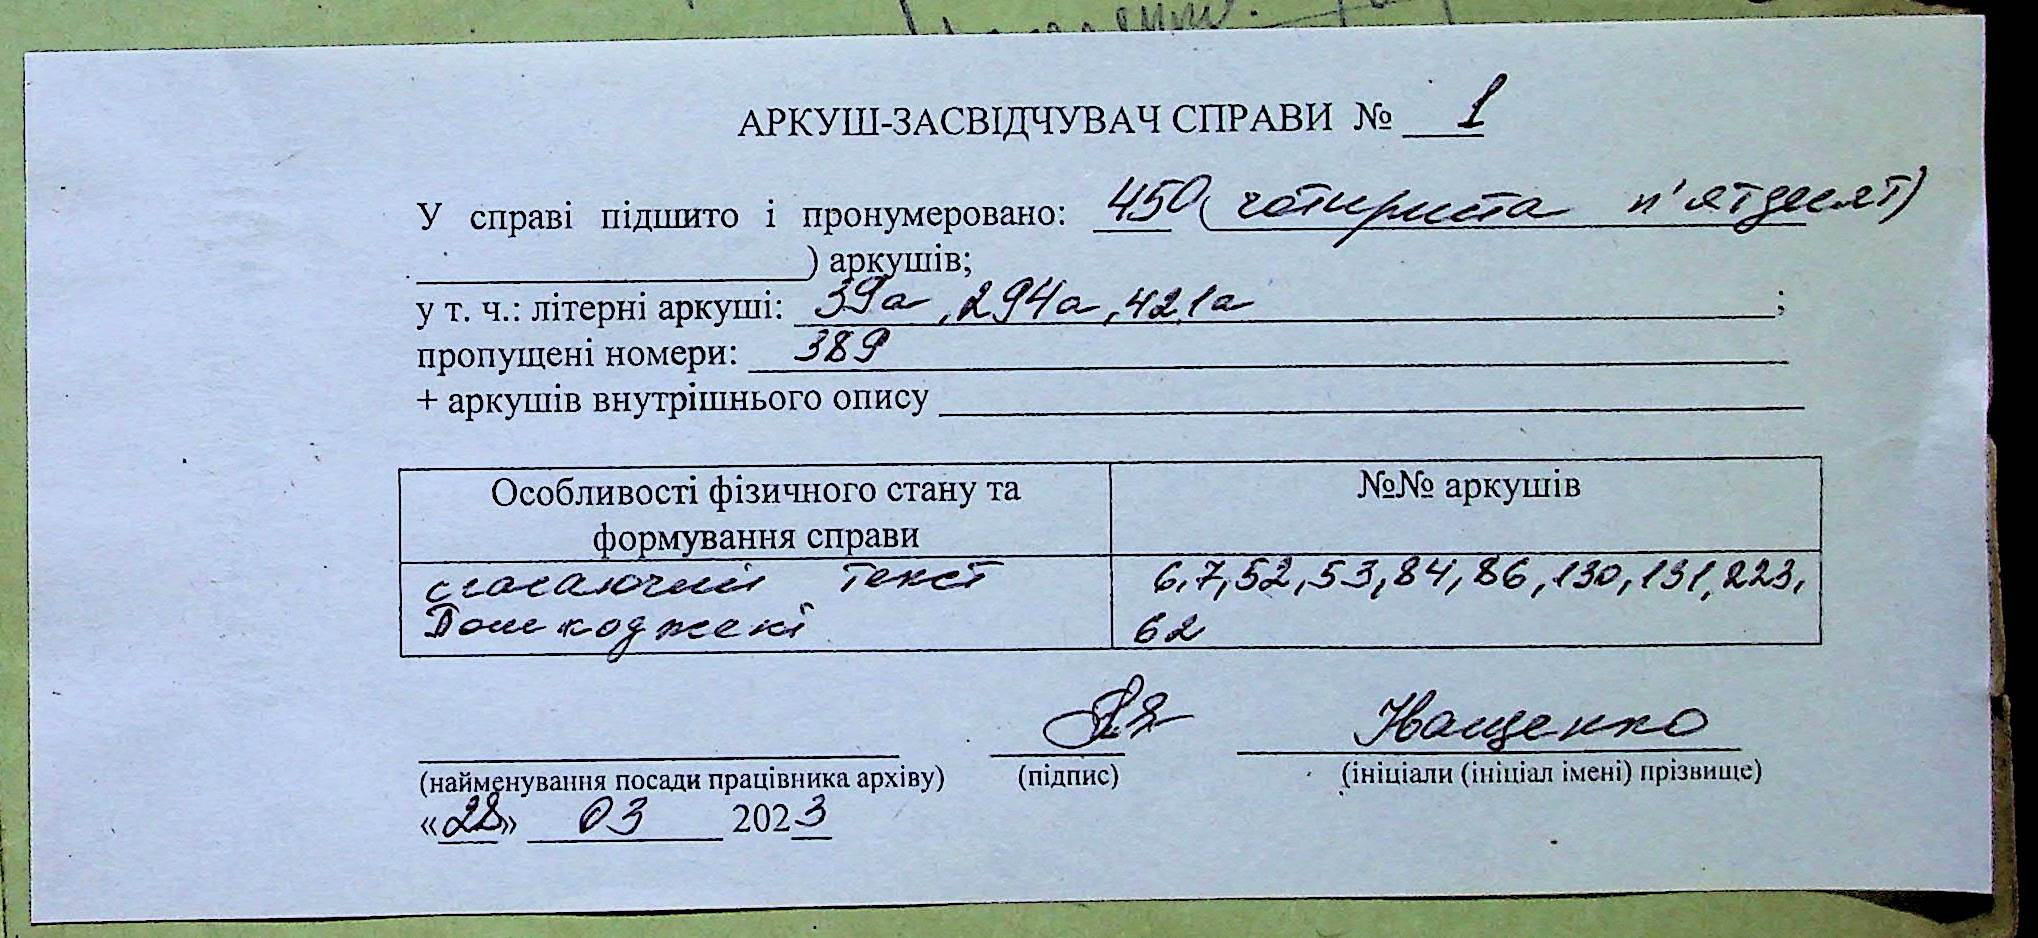 АРКУШ-ЗАСВІДЧУВАЧ СПРАВИ № 1
У справі підшито і пронумеровано: 450 (чотириста п'ятдесят)
) аркушів;
у т. ч.: літерні аркуші: 39а, 294а, 421а ;
пропущені номери: 389
+ аркушів внутрішнього опису
Особливості фізичного стану та
формування справи
№№ аркушів
згасаючий текст
6,7,52,53,84,86,130,131,223,
Пошкоджені
62
Іващенко
(найменування посади працівника архіву) (підпис) (ініціали (ініціал імені) прізвище)
«28» 03 2023